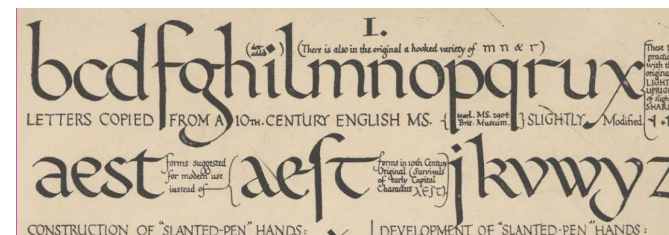 I.
(dot added) (There is also in the original a hooked variety of m n & r)
bcdfghilmnopqrux
LETTERS COPIED FROM A 10TH. CENTURY ENGLISH MS. { Harl. MS. 2904. Brit. Museum. } SLIGHTLY Modified.
aest forms suggested for modern use instead of — ( aeſt forms in 10th Century Original (Survivals of early Capital Characters jkvwyz
CONSTRUCTION OF "SLANTED-PEN" HANDS: DEVELOPMENT OF "SLANTED-PEN" HANDS: